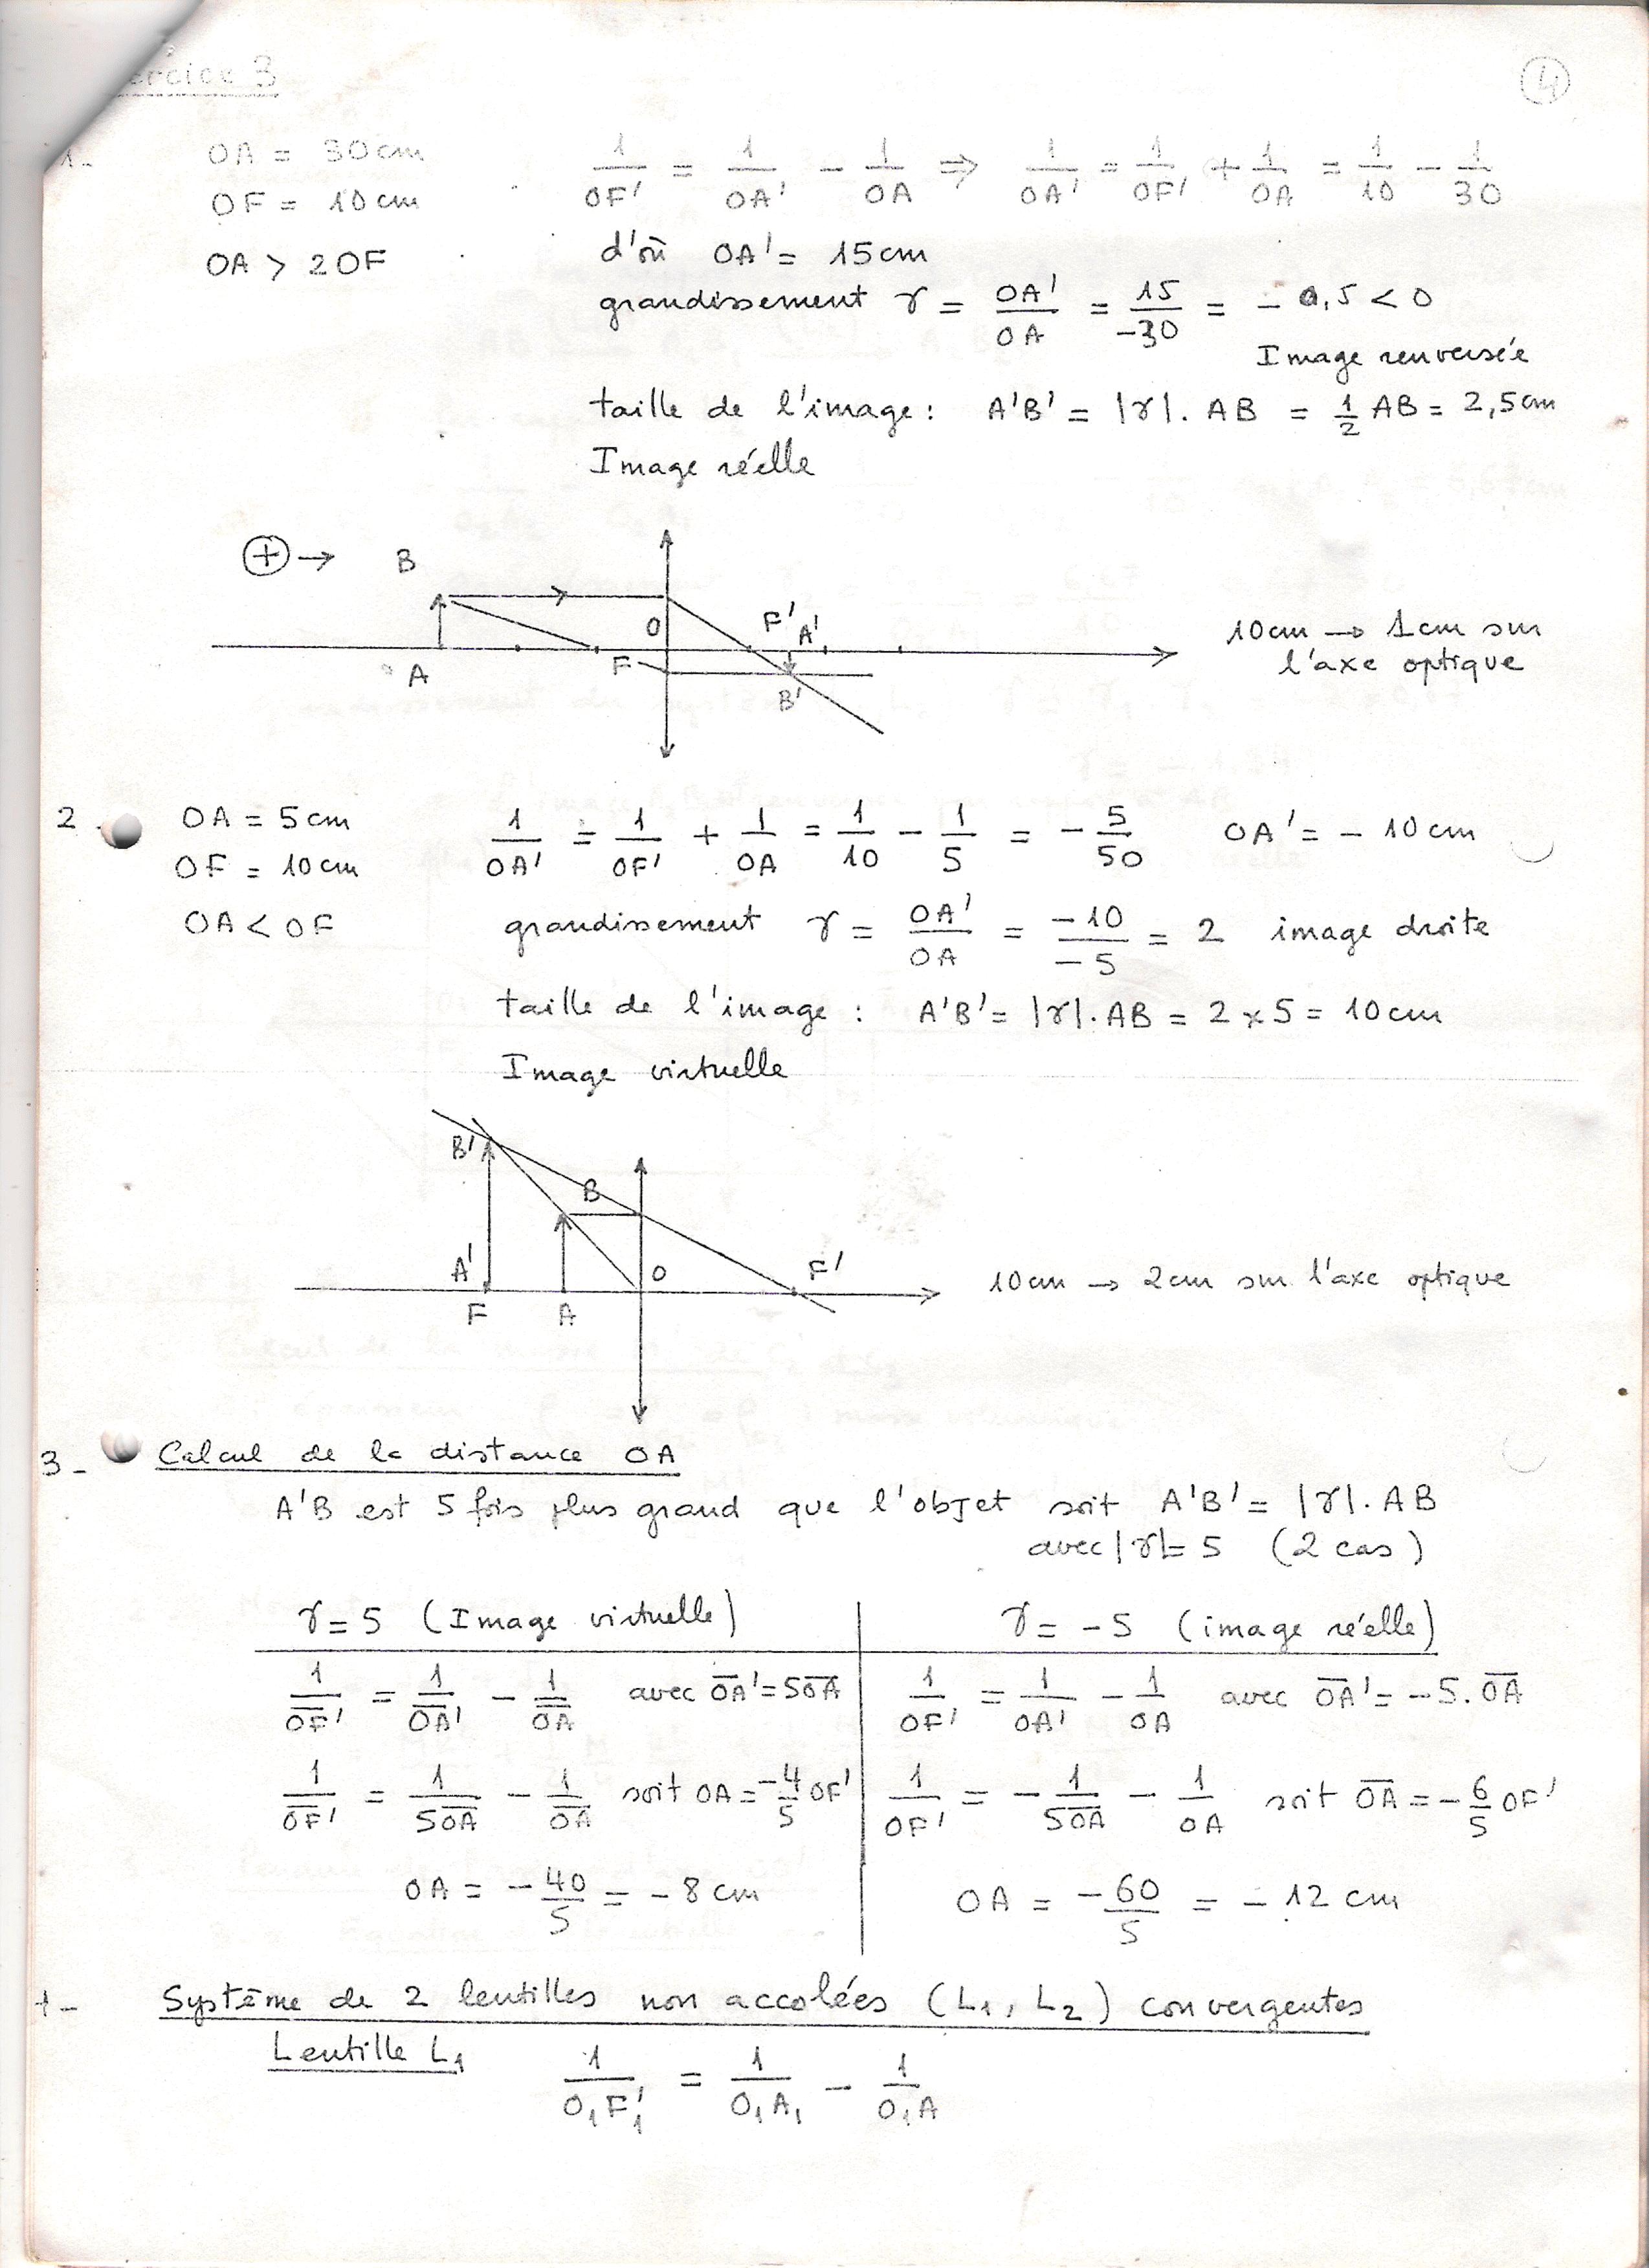 ercice 3
4
1-
OA = 30 cm
1/OF' = 1/OA' - 1/OA ⇒ 1/OA' = 1/OF' + 1/OA = 1/10 - 1/30
OF = 10 cm
OA > 2 OF
d'où OA' = 15 cm
grandissement γ = OA'/OA = 15/-30 = - 0,5 < 0
Image renversée
taille de l'image : A'B' = |γ|. AB = 1/2 AB = 2,5 cm
Image réelle
⊕ → B
O F' A'
10 cm → 1 cm sur
l'axe optique
A F
B'
2.
OA = 5 cm
1/OA' = 1/OF' + 1/OA = 1/10 - 1/5 = - 5/50 OA' = - 10 cm
OF = 10 cm
OA < OF
grandissement γ = OA'/OA = -10/-5 = 2 image droite
taille de l'image : A'B' = |γ|. AB = 2 x 5 = 10 cm
Image virtuelle
B'
B
A' O F'
10 cm → 2 cm sur l'axe optique
F A
3- Calcul de la distance OA
A'B est 5 fois plus grand que l'objet soit A'B' = |γ|. AB
avec |γ| = 5 (2 cas)
γ = 5 (Image virtuelle)
γ = - 5 (image réelle)
1/O̅F̅' = 1/O̅A̅' - 1/O̅A̅ avec O̅A̅' = 5O̅A̅
1/OF' = 1/OA' - 1/OA avec O̅A̅' = - 5. O̅A̅
1/O̅F̅' = 1/5O̅A̅ - 1/O̅A̅ soit OA = -4/5 OF'
1/OF' = - 1/5O̅A̅ - 1/OA soit O̅A̅ = - 6/5 OF'
OA = - 40/5 = - 8 cm
OA = - 60/5 = - 12 cm
Système de 2 lentilles non accolées (L₁, L₂) convergentes
Lentille L₁
1/O₁F'₁ = 1/O₁A₁ - 1/O₁A